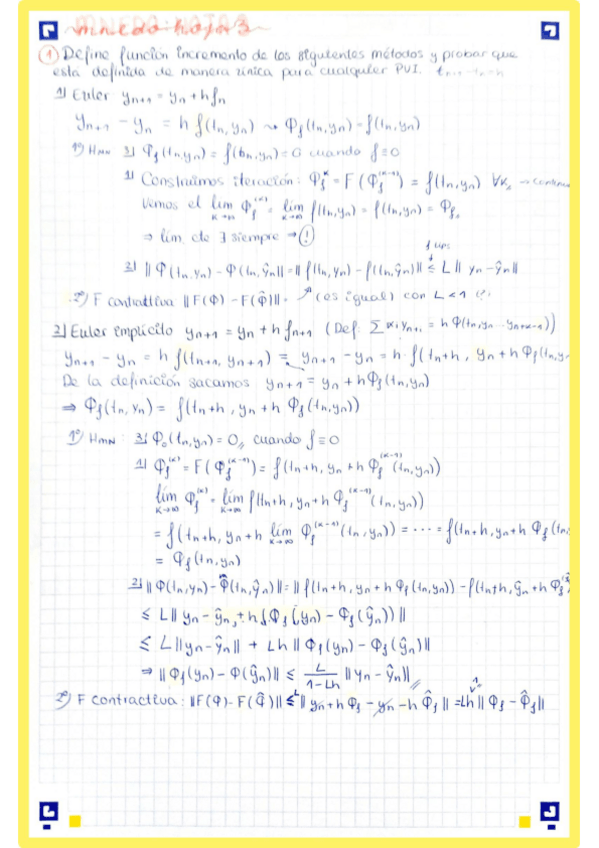 mnedo hoja 3
① Define función incremento de los siguientes métodos y probar que
está definida de manera única para cualquier PVI. tn+1 - tn = h
1) Euler yn+1 = yn + h fn
yn+1 - yn = h f(tn, yn) ⇝ Φf(tn, yn) = f(tn, yn)
1º) HMN 3) Φf(tn, yn) = f(tn, yn) = 0 cuando f ≡ 0
1) Construimos iteración: Φf^(k) = F(Φf^(k-1)) = f(tn, yn) ∀k
Vemos el lím k→∞ Φf^(k) = lím k→∞ f(tn, yn) = f(tn, yn) = Φf
⇒ lím. cte ∃ siempre → (!)
2) ‖Φ(tn, yn) - Φ(tn, ŷn)‖ = ‖f(tn, yn) - f(tn, ŷn)‖ ≤ L ‖yn - ŷn‖
2º) F contractiva ‖F(Φ) - F(Φ̂)‖ = (es igual) con L < 1
2) Euler implícito yn+1 = yn + h fn+1 (Def.
yn+1 - yn = h f(tn+1, yn+1) = yn+1 - yn = h · f(tn + h, yn + h Φf(tn, y
De la definición sacamos yn+1 = yn + h Φf(tn, yn)
⇒ Φf(tn, yn) = f(tn + h, yn + h Φf(tn, yn))
1º) HMN: 3) Φ0(tn, yn) = 0, cuando f ≡ 0
1) Φf^(k) = F(Φf^(k-1)) = f(tn + h, yn + h Φf^(k-1)(tn, yn))
lím k→∞ Φf^(k) = lím k→∞ f(tn + h, yn + h Φf^(k-1)(tn, yn))
= f(tn + h, yn + h lím k→∞ Φf^(k-1)(tn, yn)) = ··· = f(tn + h, yn + h Φf(tn,
= Φf(tn, yn)
2) ‖Φ(tn, yn) - Φ̂(tn, ŷn)‖ = ‖f(tn + h, yn + h Φf(tn, yn)) - f(tn + h, ŷn + h Φf
≤ L ‖yn - ŷn + h(Φf(yn) - Φf(ŷn))‖
≤ L ‖yn - ŷn‖ + Lh ‖Φf(yn) - Φf(ŷn)‖
⇒ ‖Φf(yn) - Φ(ŷn)‖ ≤ L/(1-Lh) ‖yn - ŷn‖
2º) F contractiva: ‖F(Φ) - F(Φ̂)‖ ≤ L ‖yn + h Φf - yn - h Φ̂f‖ = Lh ‖Φf - Φ̂f‖